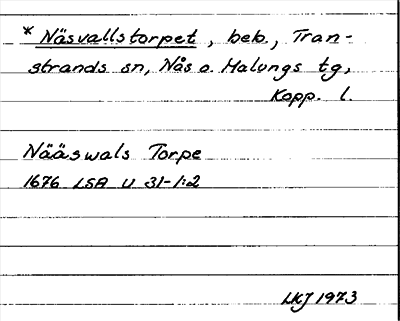 * Näsvallstorpet, beb., Tran-
strands sn, Nås o. Malungs tg,
Kopp. l.
Nääswals Torpe
1676 LSA U 31-1:2
LKJ 1973